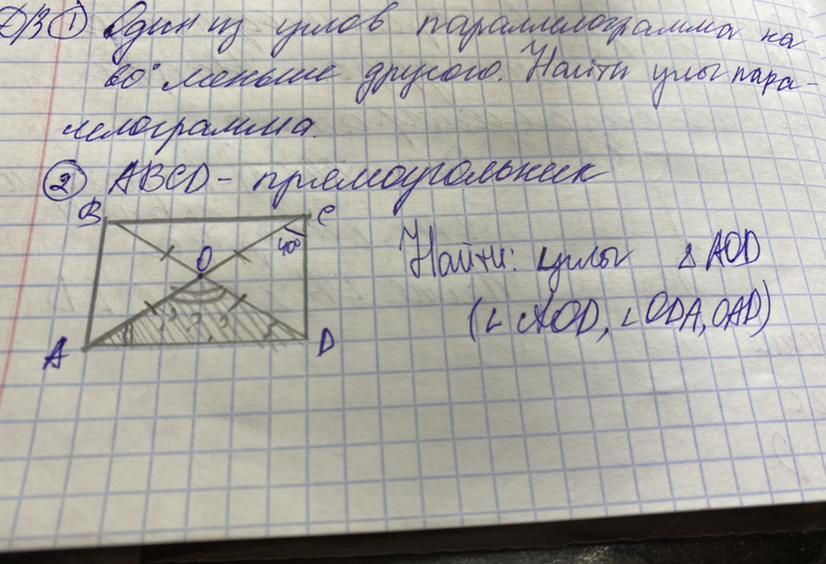 Д/З ① Один из углов параллелограмма на
20° меньше другого. Найти углы пара-
лелограмма.
② ABCD - прямоугольник
B C
40°
O
A D
Найти: углы △ AOD
(∠ AOD, ∠ ODA, OAD)